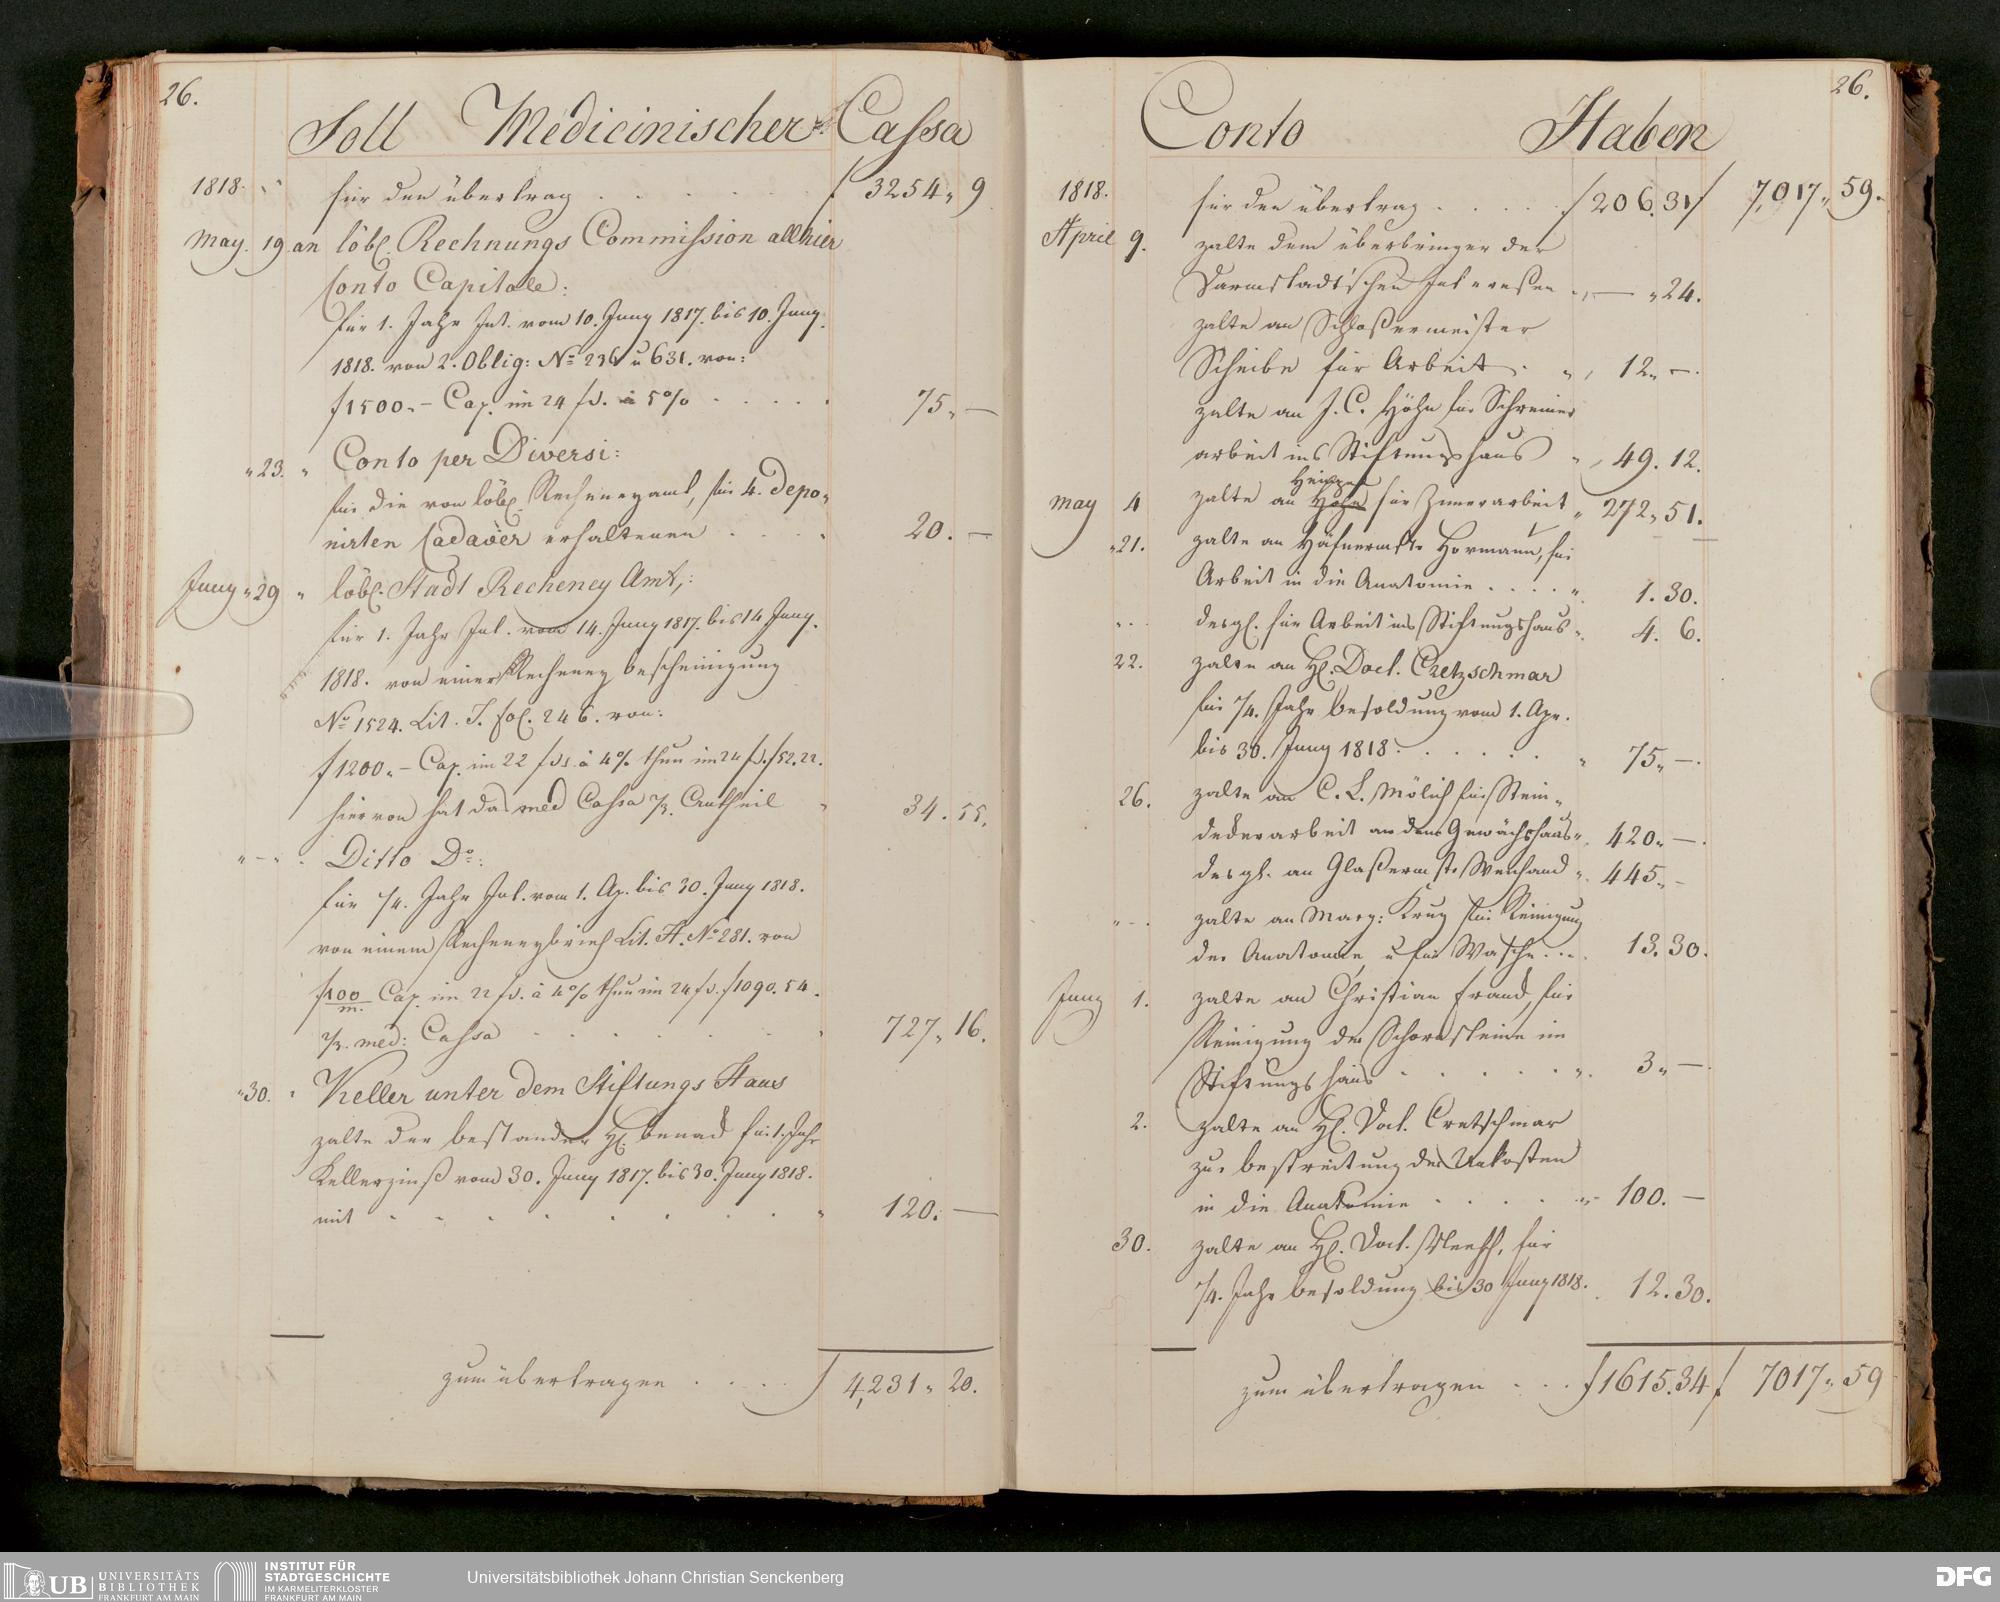 26.
Soll Medicinischer Cassa
1818. für den übertrag . . . . . f 3254 „ 9
May. 19. an löbl. Rechnungs Commission allhier
Conto Capitale:
für 1. Jahr Int. vom 10. Juny 1817. bis 10. Juny.
1818. von 2. Oblig: No 236 u 631. von:
f 1500 „ – Cap. im 24 fs. à 5% . . . . . 75 „ —
„ 23. „ Conto per Diversi:
für die von löbl. Recheneyamt, für 4. depo„
nirten Cadaver erhaltenen . . . . 20. —
Juny „ 29 „ löbl. Stadt Recheney Amt,:
für 1. Jahr Int. vom 14. Juny 1817. bis 14 Juny.
1818. von einer Recheney bescheinigung
No 1524. Lit. J. fol. 246. von:
f 1200 „ – Cap. im 22 fs. à 4% thun im 24 fs. f 52.22.
hiervon hat das med Cassa 2/3. Antheil „ 34. 55.
„ – „ . Ditto Do:
für 1/4. Jahr Int. vom 1. Ap. bis 30. Juny 1818.
von einem Recheneybrief Lit. A. No 281. von
f 100/m. Cap. im 22 fs. à 4% thun im 24 fs. f 1090. 54.
2/3. med: Cassa . . . . . 727 „ 16.
„ 30. „ Keller unter dem Stiftungs Haus
zalte der beständer H. Benard für 1. Jahr
Kellerzinß vom 30. Juny 1817. bis 30. Juny 1818.
mit . . . . . . . . „ 120. —
zum übertragen . . . . f 4,231 „ 20.
26.
Conto Haben
1818. für den übertrag . . . . f 206.31 f 7,017 „ 59.
April 9. zalte dem überbringer der
Darmstadt'schen Interessen . „ — „ 24.
zalte an Schloßermeister
Scheibe für Arbeit . „ 12 „ –.
zalte an J. C. Höhn für Schreiner
arbeit ins Stiftungshaus „ 49. 12.
May 4 zalte an Höhn für Zimerarbeit „ 272 „ 51.
„ 21. zalte an Häfnermstr Hormann, für
Arbeit in die Anatomie . . . . „ 1. 30.
„ . . desgl. für Arbeit ins Stiftungshaus „ 4. 6.
22. zalte an H. Doct. Cretzschmar
für 1/4. Jahr Besoldung vom 1. Apr.
bis 30. Juny 1818. . . . . . „ 75 „ –.
26. zalte an C. L. Mölich für Stein„
dederarbeit an dem Gewächshaus „ 420 „ —.
desgl. an Glaßermstr Weihand „ 445 „ –
„ – . zalte an Marg: Krug für Reinigung
der Anatomie u für Wasche . . . 13. 30.
Juny 1. zalte an Christian Frand, für
Reinigung der Schornsteine im
Stiftungshaus . . . . . „ 3 „ —.
2. zalte an H. Doct. Cretschmar
zur bestreitung der Unkosten
in die Anatomie . . . . „ 100. —
30. zalte an H. Doct. für
1/4. Jahr Besoldung bis 30 Juny 1818. . 12. 30.
zum übertragen . . . f 1615.34 f 7017 „ 59
UB UNIVERSITÄTS
BIBLIOTHEK
FRANKFURT AM MAIN
INSTITUT FÜR
STADTGESCHICHTE
IM KARMELITERKLOSTER
FRANKFURT AM MAIN
Universitätsbibliothek Johann Christian Senckenberg
DFG